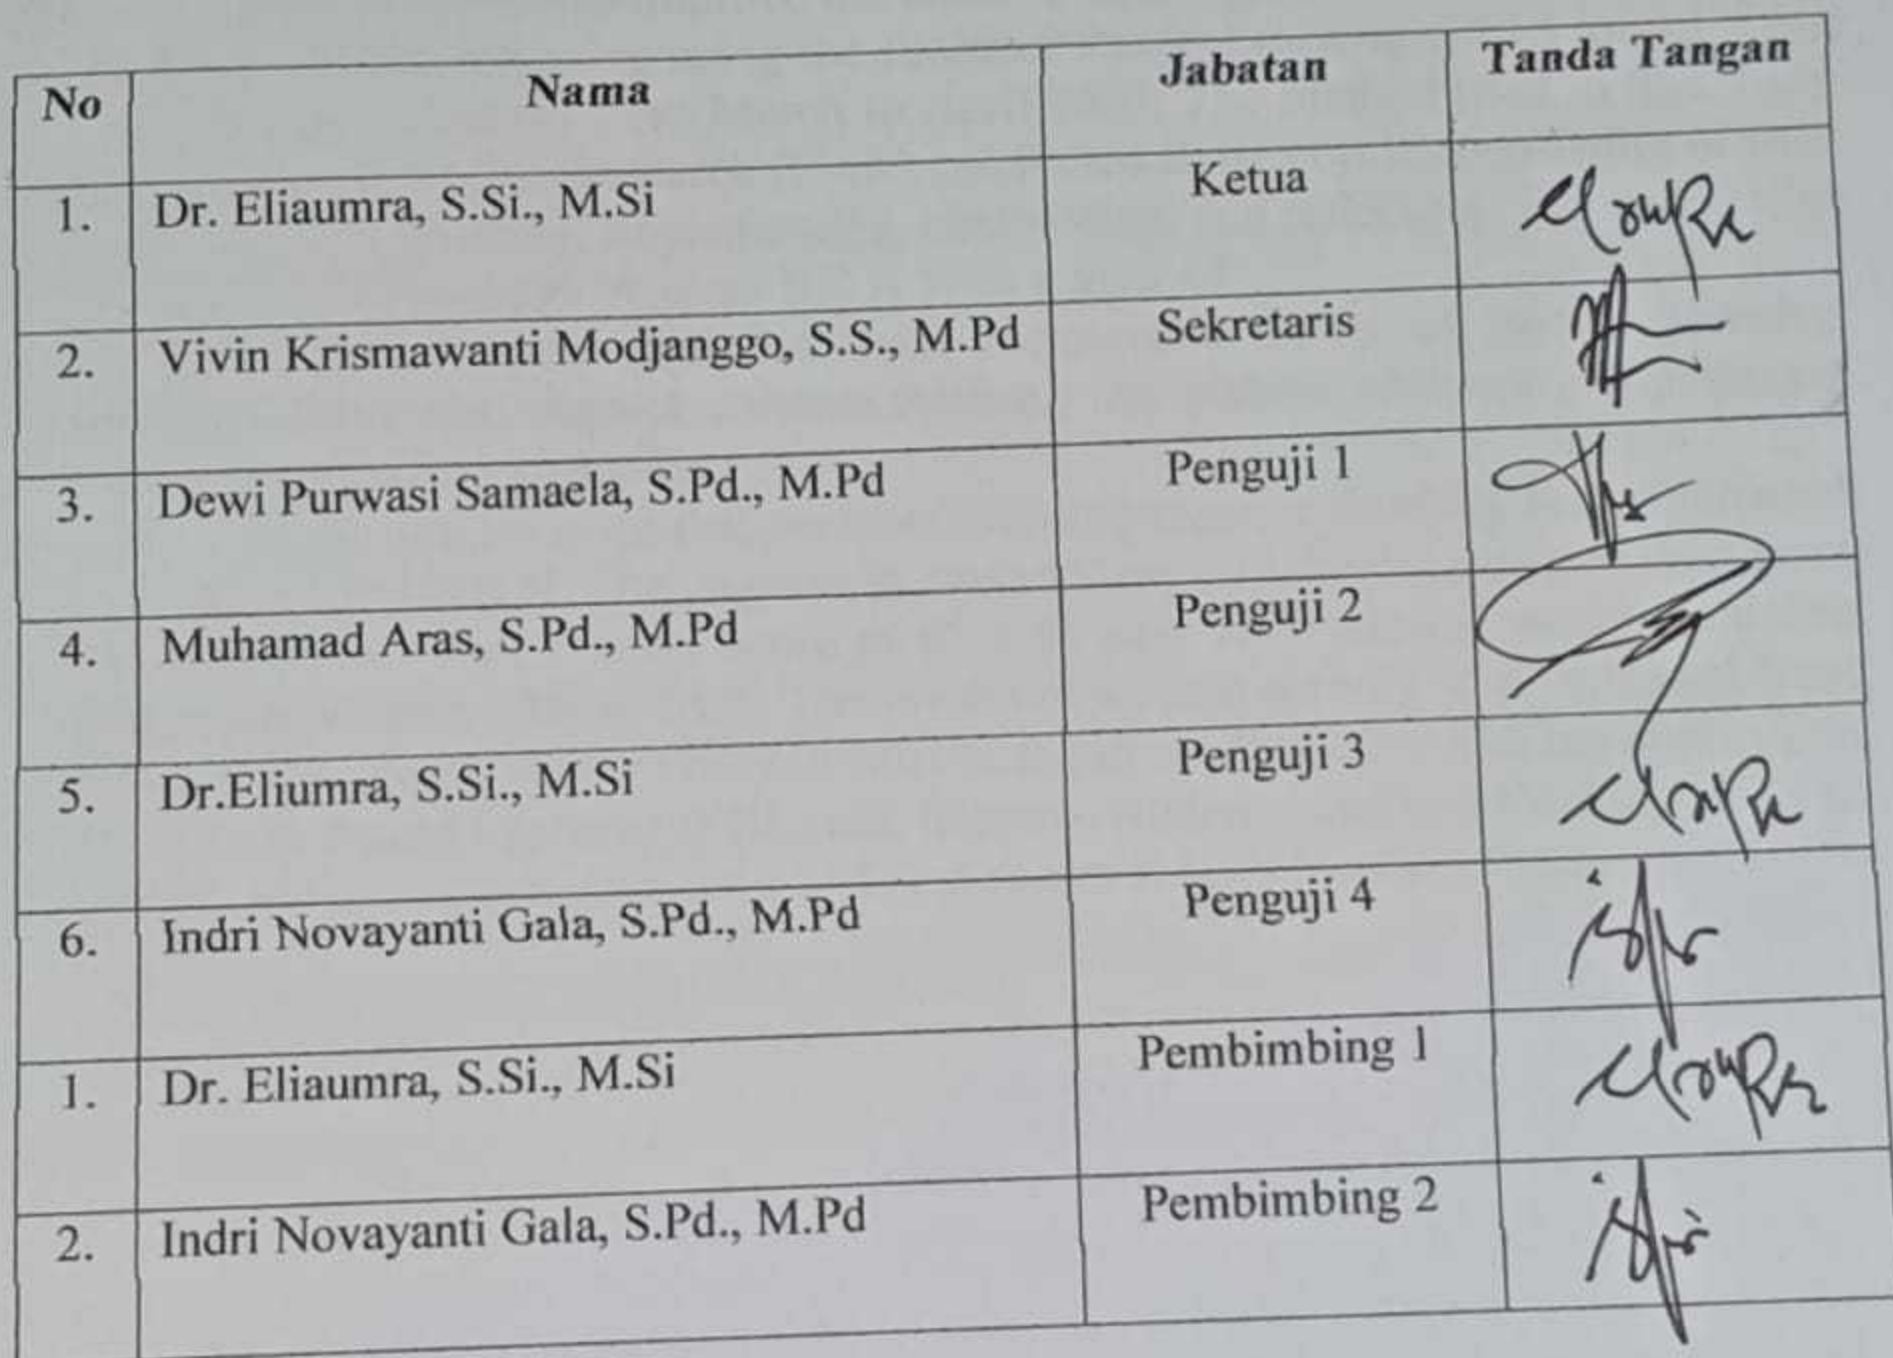 No Nama Jabatan Tanda Tangan
1. Dr. Eliaumra, S.Si., M.Si Ketua
2. Vivin Krismawanti Modjanggo, S.S., M.Pd Sekretaris
3. Dewi Purwasi Samaela, S.Pd., M.Pd Penguji 1
4. Muhamad Aras, S.Pd., M.Pd Penguji 2
5. Dr.Eliumra, S.Si., M.Si Penguji 3
6. Indri Novayanti Gala, S.Pd., M.Pd Penguji 4
1. Dr. Eliaumra, S.Si., M.Si Pembimbing 1
2. Indri Novayanti Gala, S.Pd., M.Pd Pembimbing 2